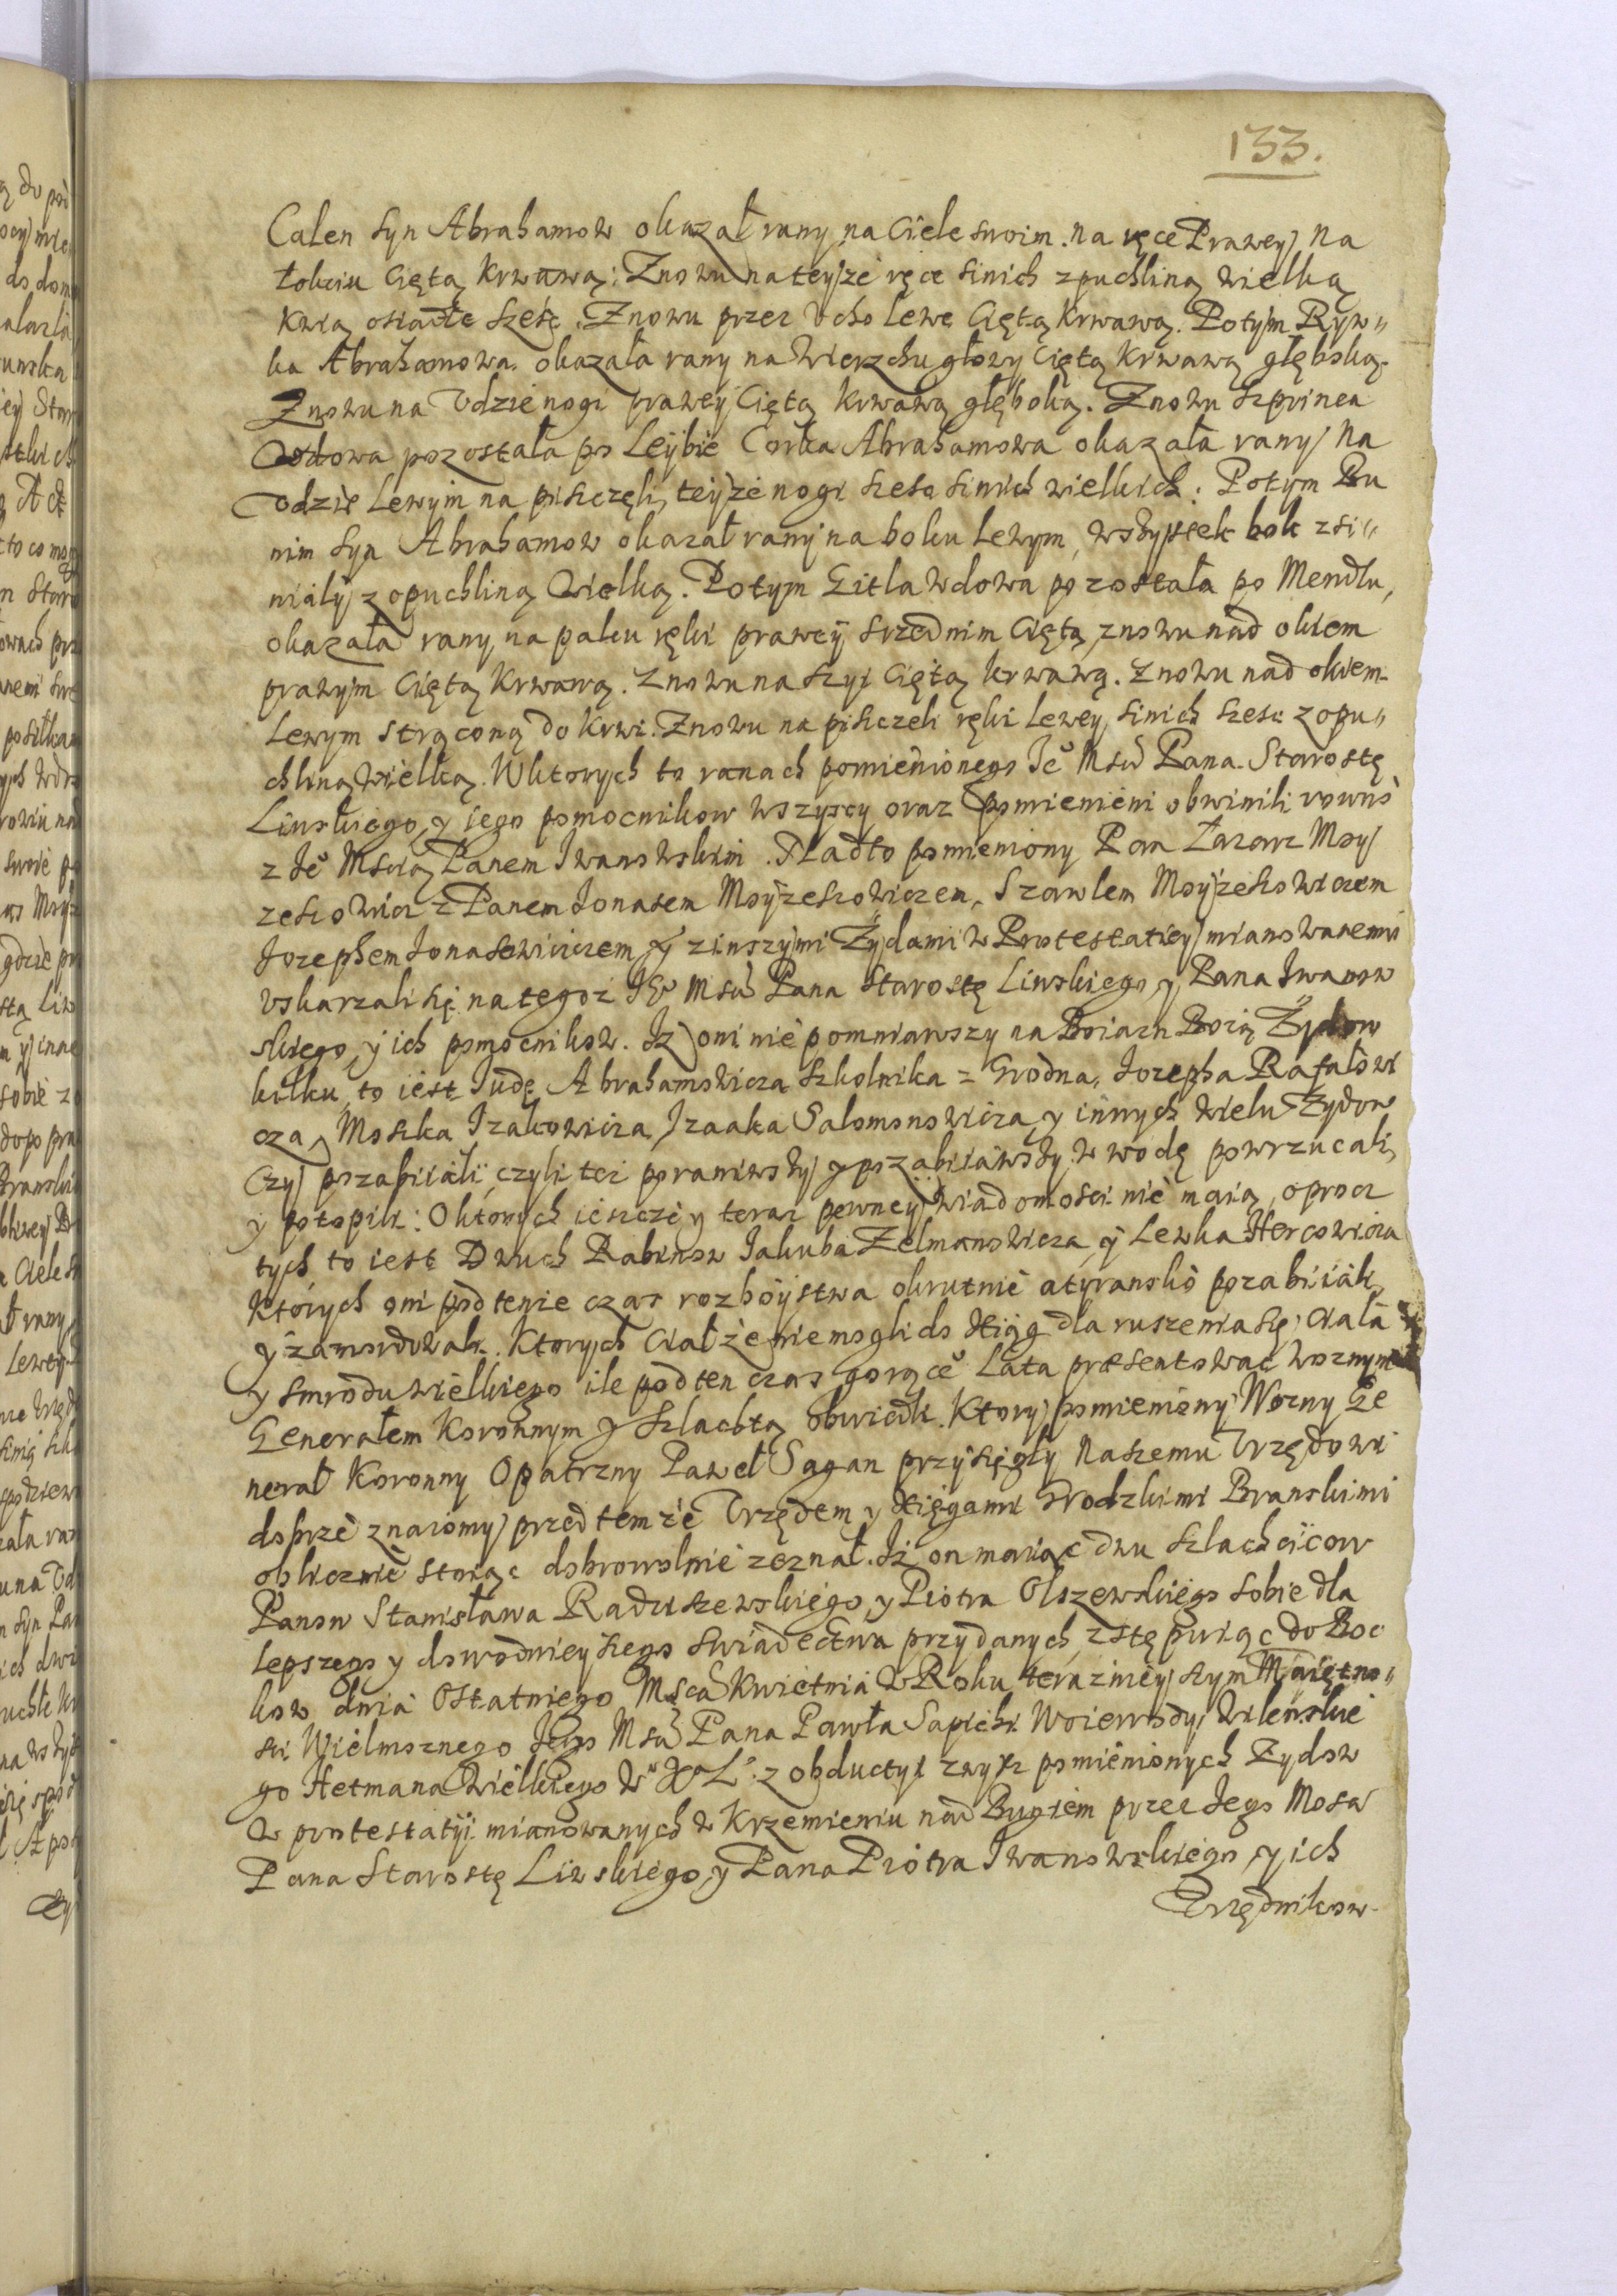 133.
Calen Syn Abrahamow okazał rany na Ciele swoim. Na ręce Prawey, Na
łokciu Ciętą krwawą: Znowu na teyże ręce sinich z puchliną wielką
krwią osiadłe sześć. Znowu przez Ucho lewe Ciętą krwawą. Potym Ryw„
ka Abrahamowa okazała rany na wierzchu głowy Ciętą krwawą głęboką.
Znowu na Udzie nogi prawey Ciętą krwawą głęboką. Znowu Szprinca
Wdowa pozostała po Leybie Corka Abrahamowa okazała rany Na
Udzie Lewym na piszczeli, teyże nogi sześć sinich wielkich. Potym Bu
nim Syn Abrahamow okazał rany na boku Lewym, wszystek bok zsi„
niały z opuchliną Wielką. Potym Gitla Wdowa pozostała po Mendlu,
okazała rany, na palcu ręki prawey srzednim Ciętą, znowu nad okiem
prawym Ciętą krwawą. Znowu na szyi Ciętą krwawą. Znowu nad okiem
Lewym strąconą do krwi. Znowu na piszczeli ręki Lewey, sinich sześć z opu„
chliną Wielką. W ktorych to ranach pomienionego Je° Msci Pana Starostę
Liwskiego, y iego pomocnikow wszyscy oraz pomienieni obwinili rowno
z Je° Mscią Panem Iwanowskim. Nadto pomieniony Pan Łazarz Moy
zeszowicz z Panem Jonasem Moyzeszowiczem, Szawlem Moyżeszowiczem
Jozephem Jonasewiczem y z inszymi Żydami w Protestatiey mianowanemi
Uskarzali się na tegoż Je° Msci Pana Starostę Liwskiego, y Pana Iwanow
skiego, y ich pomocnikow. Iż oni nie pomniawszy na Boiazn Bożą Żydow
kilku, to iest Judę Abrahamowicza Szkolnika z Grodna, Jozepha Rafałowi
cza, Moszka Izakowicza, Izaaka Salomonowicza, y innych wielu Żydow
Czy pozabiiali, czyli też poraniwszy y pozabiiawszy w wodę powrzucali,
y potopili: O ktorych ieszcze y teraz pewney wiadomości nie maią, oprocz
tych to iest Dwuch Rabinow Jakuba Zelmanowicza, y Lewka Hercowicza
Ktorych oni pod tenże czas rozboystwa okrutnie a tyransko pozabiiali,
y zamordowali. Ktorych Ciał że nie mogli do Xiąg dla ruszenia się Ciała
y smrodu wielkiego ile pod ten czas gorące° Lata præsentować woznym
Generałem Koronnym y Szlachtą obwiedli. Ktory pomieniony Wozny Ge
nerał Koronny Opatrzny Paweł Sagan przysięgły Naszemu Urzędowi
dobrze znaiomy, przed tem że Urzędem y Xięgami Grodzkimi Branskimi
oblicznie stoiąc dobrowolnie zeznał. Iż on maiąc dwu Szlachcicow
Panow Stanisława Raduszewskiego, y Piotra Olszewskiego sobie dla
lepszego y dowodnieyszego swiadectwa przydanych, zstępuiąc do Boc
kow dnia Ostatniego Msca Kwietnia w Roku teraznieyszym Maiętno„
sci Wielmoznego Jego Msci Pana Pawła Sapiehi Woiewody Wilenskie
go Hetmana Wielkiego W° X° L° z obductyi zwysz pomienionych Zydow
w protestatyi mianowanych w Krzemieniu nad Bugiem przez Jego Mosci
Pana Starostę Liwskiego, y Pana Piotra Iwanowskiego, y ich
Urzędnikow